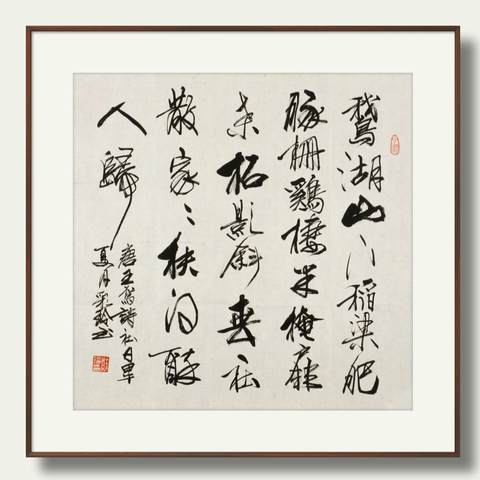 鵞湖山下稻粱肥
豚柵鷄棲半掩扉
桑柘影斜春社
散家〻扶得醉
人歸
唐王駕詩社日
夏月